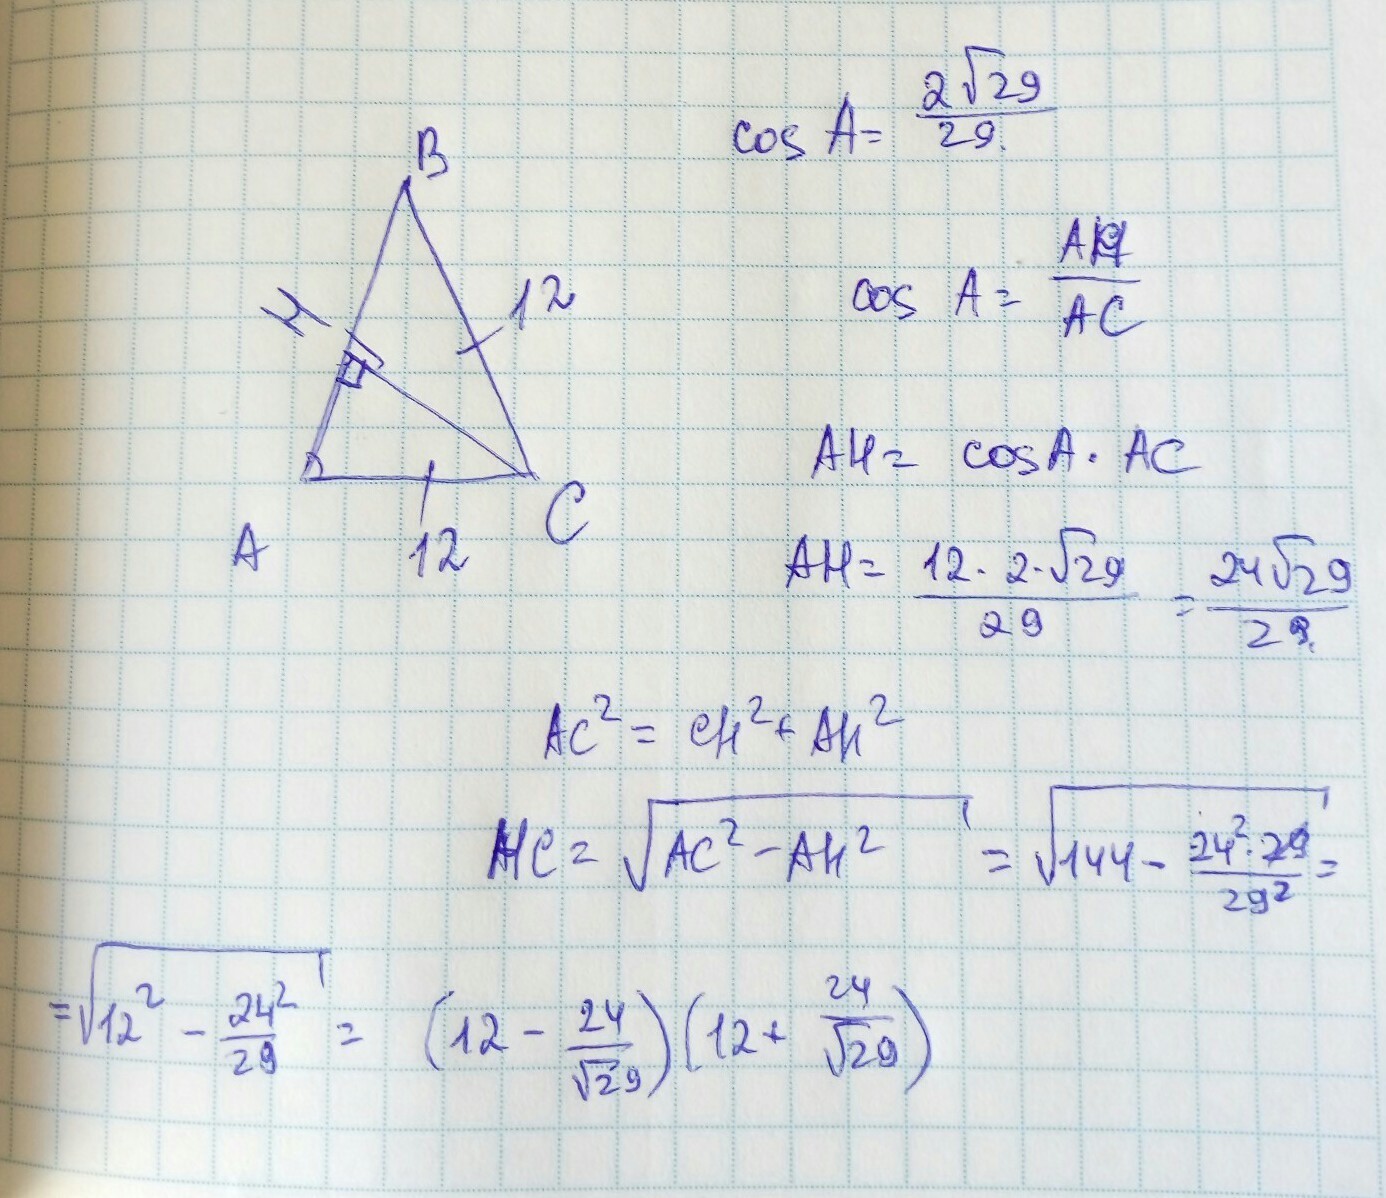 B
H
12
A
12
C
cos A = 2√29 / 29
cos A = AH / AC
AH = cosA · AC
AH = 12 · 2 · √29 / 29 = 24√29 / 29
AC² = CH² + AH²
HC = √(AC² - AH²) = √(144 - 24² · 29 / 29²) =
= √(12² - 24² / 29) = (12 - 24 / √29)(12 + 24 / √29)